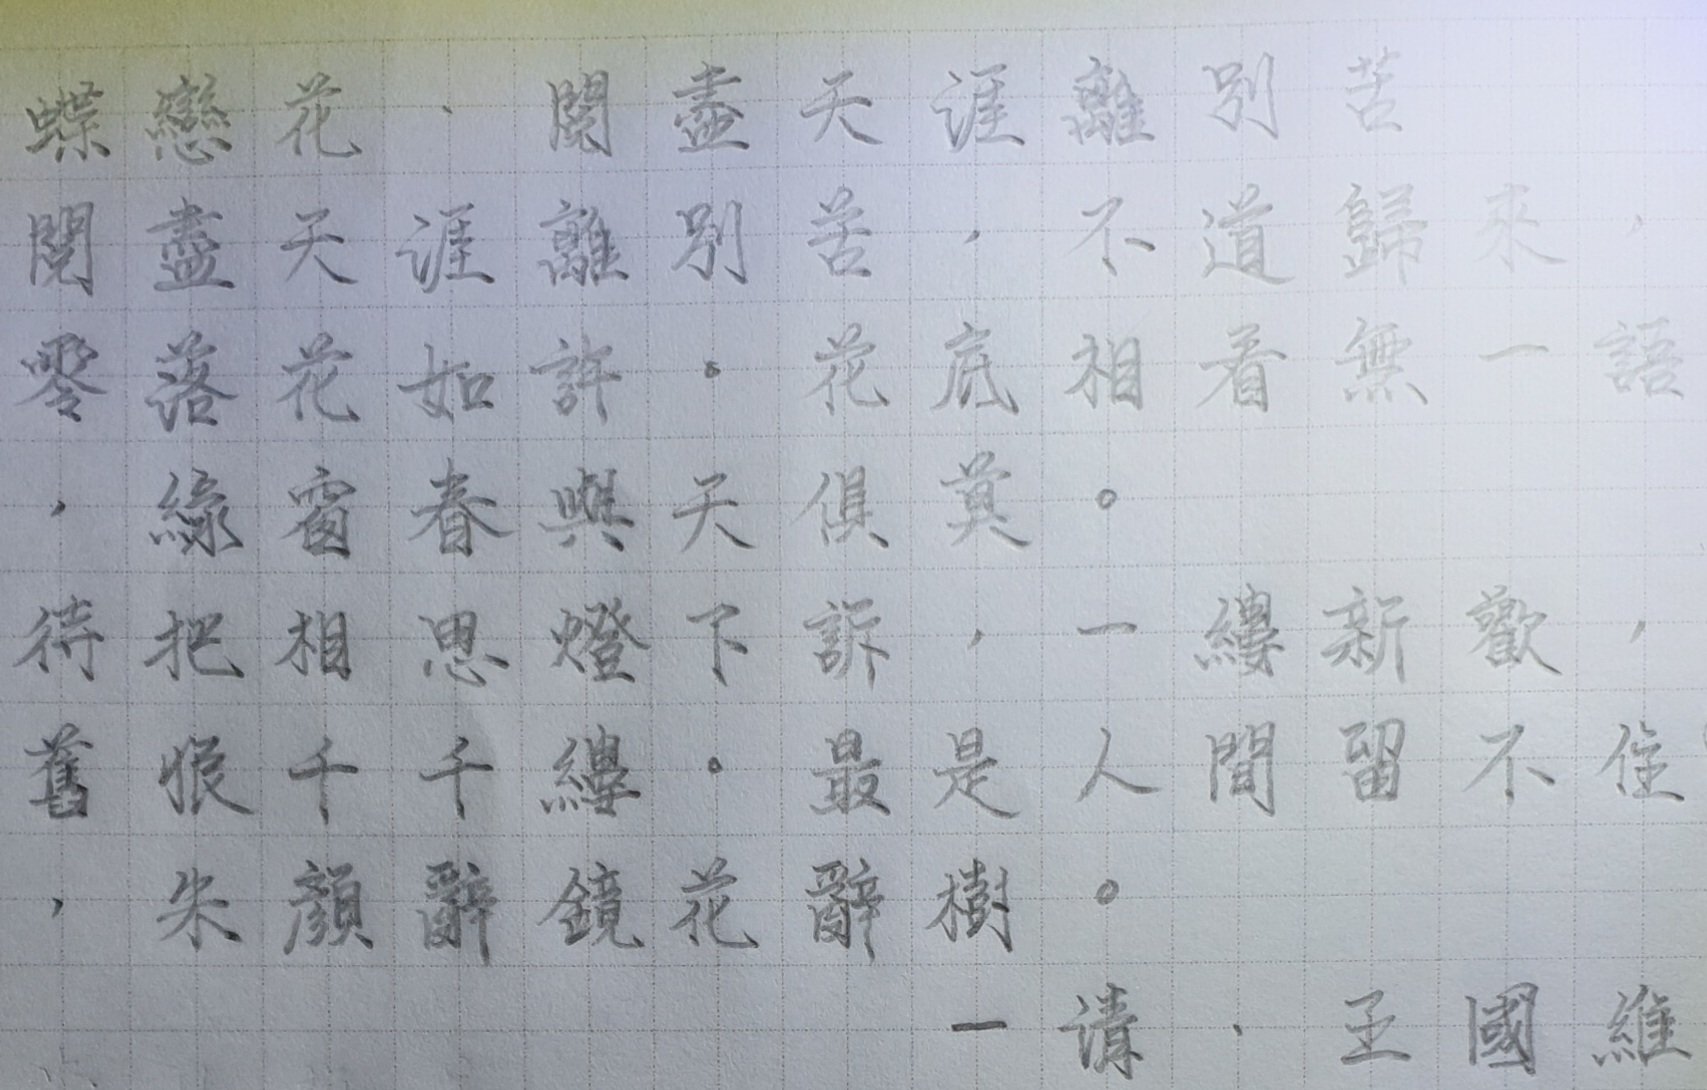 蝶戀花·閱盡天涯離別苦
閱盡天涯離別苦,不道歸來,
零落花如許。花底相看無一語
,綠窗春與天俱莫。
待把相思燈下訴,一縷新歡,
舊恨千千縷。最是人間留不住
,朱顏辭鏡花辭樹。
一清·王國維